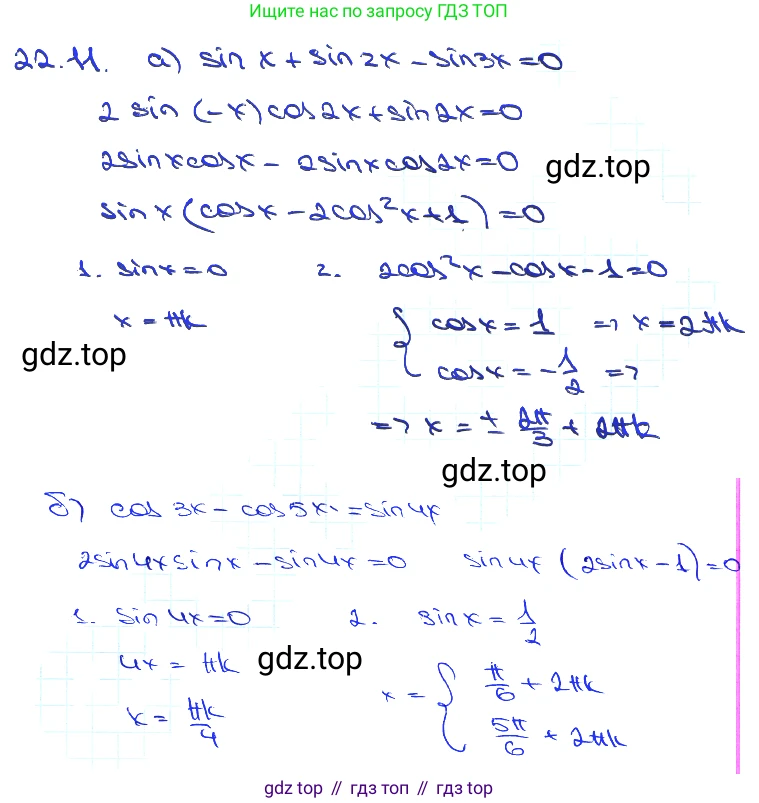 Ищите нас по запросу ГДЗ ТОП
22.11. а) sin x + sin 2x - sin 3x = 0
2 sin (-x) cos 2x + sin 2x = 0
2 sin x cos x - 2 sin x cos 2x = 0
gdz.top
sin x (cos x - 2cos²x + 1) = 0
1. sin x = 0 2. 2cos²x - cos x - 1 = 0
x = πk { cos x = 1 => x = 2πk
gdz.top
cos x = -1/2 =>
=> x = ± 2π/3 + 2πk
gdz.top
б) cos 3x - cos 5x = sin 4x
2 sin 4x sin x - sin 4x = 0 sin 4x (2 sin x - 1) = 0
1. sin 4x = 0 2. sin x = 1/2
4x = πk
gdz.top
x = { π/6 + 2πk
x = πk/4
5π/6 + 2πk
gdz top // гдз топ // gdz top